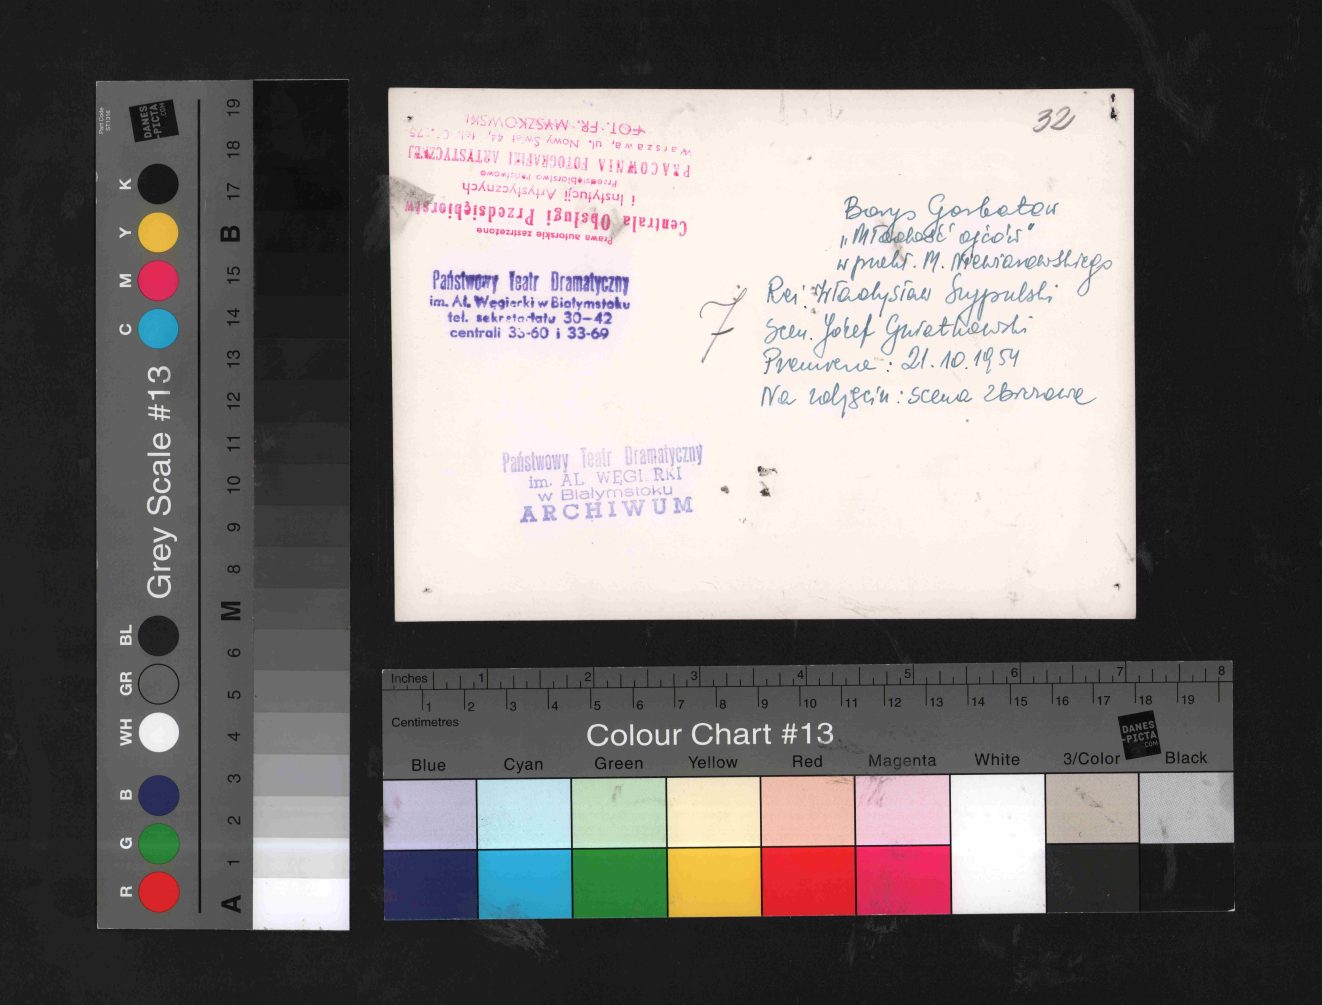 32
Borys Gorbatow
„Młodość ojców"
w przekł. M. Niewiarowskiego
Reż: Władysław Szypulski
Scen. Józef Gwiatkowski
Premiera: 21.10.1954
Na zdjęciu: scena zbiorowa
7
FOT. FR. MYSZKOWSKI
Warszawa, ul. Nowy Świat 44, tel.
PRACOWNIA FOTOGRAFIKI ARTYSTYCZNEJ
Przedsiębiorstwo Państwowe
i Instytucji Artystycznych
Centrala Obsługi Przedsiębiorstw
Prawa autorskie zastrzeżone
Państwowy Teatr Dramatyczny
im. Al. Węgierki w Białymstoku
tel. sekretariatu 30-42
centrali 33-60 i 33-69
Państwowy Teatr Dramatyczny
im. AL. WĘGI RKI
w Białymstoku
ARCHIWUM
Part Code
ST1316
DANES
-PICTA
.COM
Grey Scale #13
K
Y
M
C
BL
GR
WH
B
G
R
19
18
17
B
15
14
13
12
11
10
9
8
M
6
5
4
3
2
1
A
Inches 1 2 3 4 5 6 7 8
1 2 3 4 5 6 7 8 9 10 11 12 13 14 15 16 17 18 19
Centimetres
Colour Chart #13
DANES
-PICTA
.COM
Blue Cyan Green Yellow Red Magenta White 3/Color Black